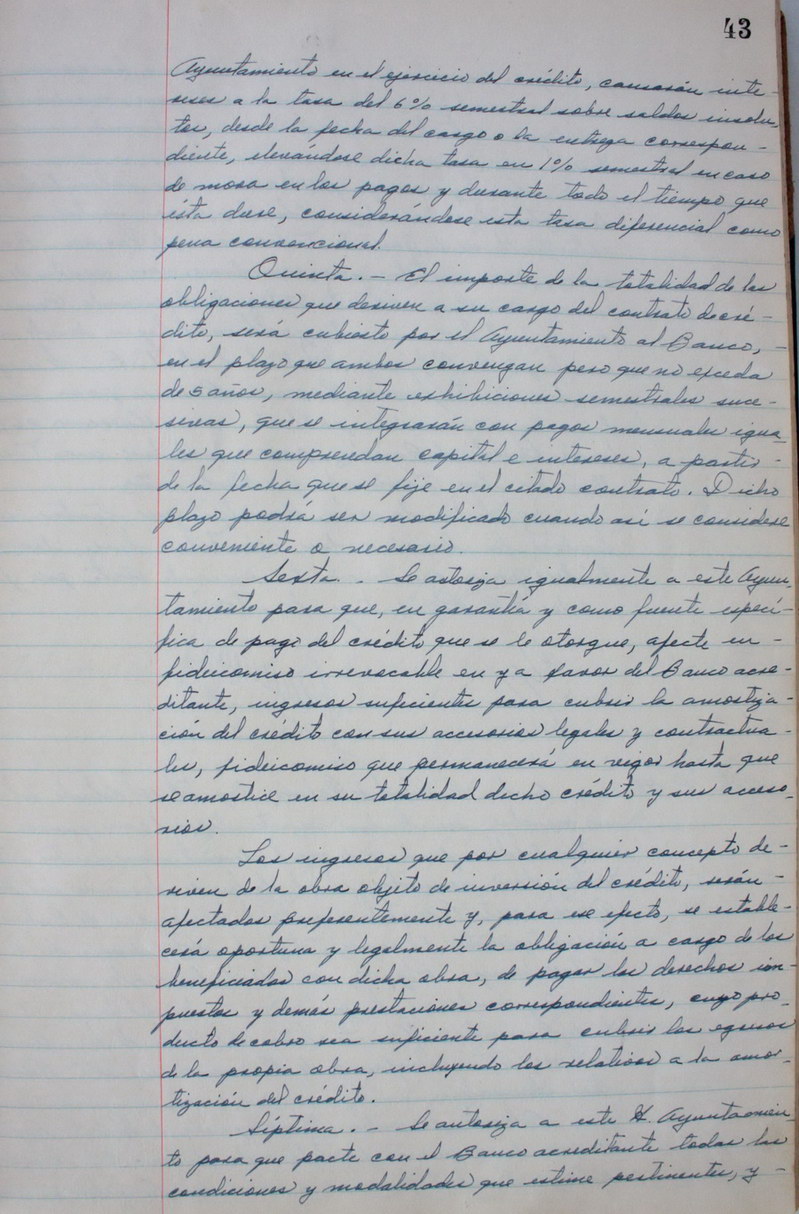 43
Ayuntamiento en el ejercicio del crédito, causarán inte-
reses a la tasa del 6% semestral sobre saldos insolu-
tos, desde la fecha del cargo o la entrega correspon-
diente, elevándose dicha tasa en 1% semestral en caso
de mora en los pagos y durante todo el tiempo que
ésta dure, considerándose esta tasa diferencial como
pena convencional.
Quinta.- El importe de la totalidad de las
obligaciones que deriven a su cargo del contrato de cré-
dito, será cubierto por el Ayuntamiento al Banco, -
en el plazo que ambos convengan pero que no exceda
de 5 años, mediante exhibiciones semestrales suce-
sivas, que se integrarán con pagos mensuales igua-
les que comprendan capital e intereses, a partir -
de la fecha que se fije en el citado contrato. Dicho
plazo podrá ser modificado cuando así se considere
conveniente o necesario.
Sexta.- Se autoriza igualmente a este Ayun-
tamiento para que, en garantía y como fuente especí-
fica de pago del crédito que se le otorgue, afecte en -
fideicomiso irrevocable en y a favor del Banco acre-
ditante, ingresos suficientes para cubrir la amortiza-
ción del crédito con sus accesorios legales y contractua-
les, fideicomiso que permanecerá en vigor hasta que
se amortice en su totalidad dicho crédito y sus acceso-
rios.
Los ingresos que por cualquier concepto de-
riven de la obra objeto de inversión del crédito, serán -
afectados preferentemente y, para ese efecto, se estable-
cerá oportuna y legalmente la obligación a cargo de los
beneficiados con dicha obra, de pagar los derechos im-
puestos y demás prestaciones correspondientes, cuyo pro-
ducto de cobro sea suficiente para cubrir los egresos
de la propia obra, incluyendo los relativos a la amor-
tización del crédito.
Séptima.- Se autoriza a este H. Ayuntamien-
to para que pacte con el Banco acreditante todas las
condiciones y modalidades que estime pertinentes, y -